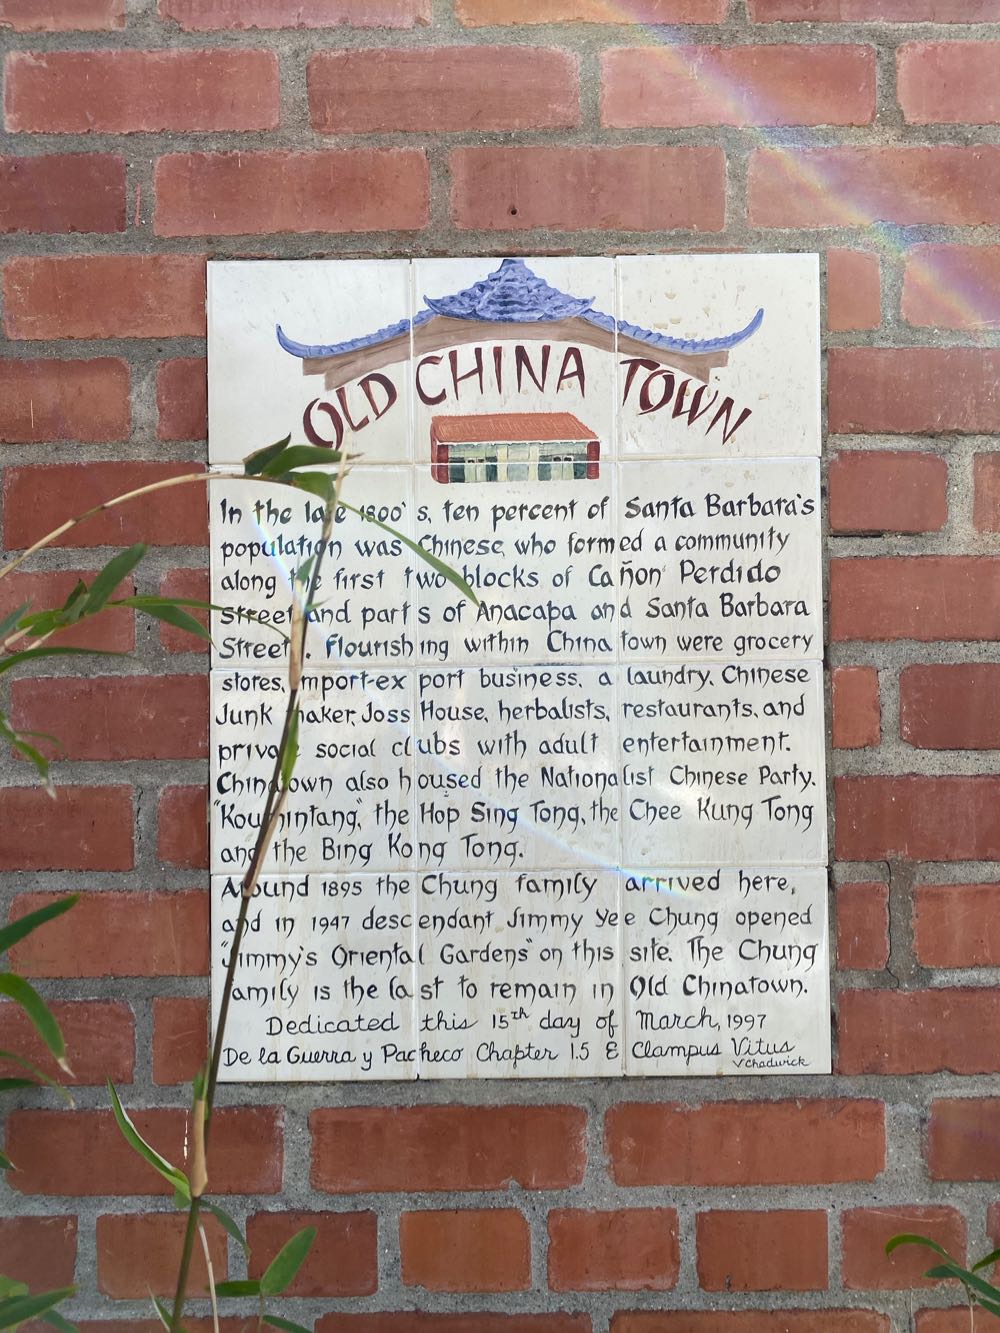 OLD CHINA TOWN
In the late 1800's, ten percent of Santa Barbara's
population was Chinese who formed a community
along the first two blocks of Cañon Perdido
Street and parts of Anacapa and Santa Barbara
Street. Flourishing within Chinatown were grocery
stores, import-export business, a laundry, Chinese
Junk maker, Joss House, herbalists, restaurants, and
private social clubs with adult entertainment.
Chinatown also housed the Nationalist Chinese Party,
"Koumintang," the Hop Sing Tong, the Chee Kung Tong
and the Bing Kong Tong.
Around 1895 the Chung family arrived here,
and in 1947 descendant Jimmy Yee Chung opened
"Jimmy's Oriental Gardens" on this site. The Chung
family is the last to remain in Old Chinatown.
Dedicated this 15th day of March, 1997
De la Guerra y Pacheco Chapter 1.5 E Clampus Vitus
V Chadwick